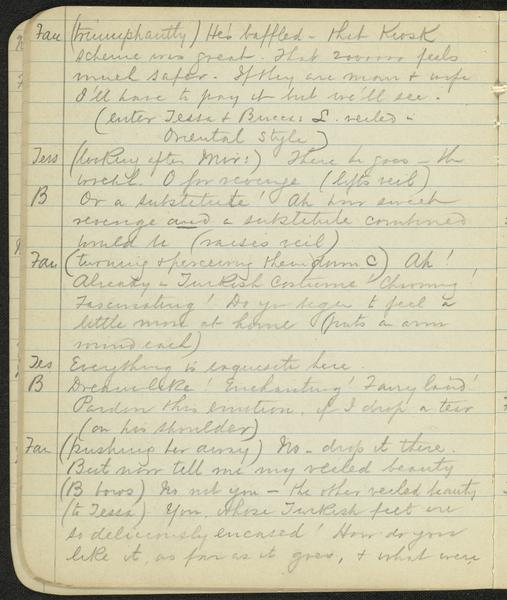 Fau (triumphantly) He's baffled - that Kiosk
scheme was great. That 200000 feels
much safer. If they are man & wife
I'll have to pay it but we'll see.
(enter Tessa & Bucc: L. veiled in
Oriental style)
Tess (looking after Mir:) There he goes - the
wretch. O for revenge (lifts veil)
B Or a substitute! Ah how sweet
revenge and a substitute combined
would be (raises veil)
Fau (turning & perceiving them down C) Ah!
Already in Turkish costume! Charming!
Fascinating! Do you begin to feel a
little more at home (puts an arm
round each)
Tes Everything is exquisite here.
B Dreamlike! Enchanting! Fairyland!
Pardon this emotion, if I drop a tear
(on his shoulder)
Fau (pushing her away) No - drop it there.
But now tell me my veiled beauty
(B bows) No not you - the other veiled beauty
(to Tessa) You, whose Turkish feet are
so deliciously encased! How do you
like it, as far as it goes, & what were